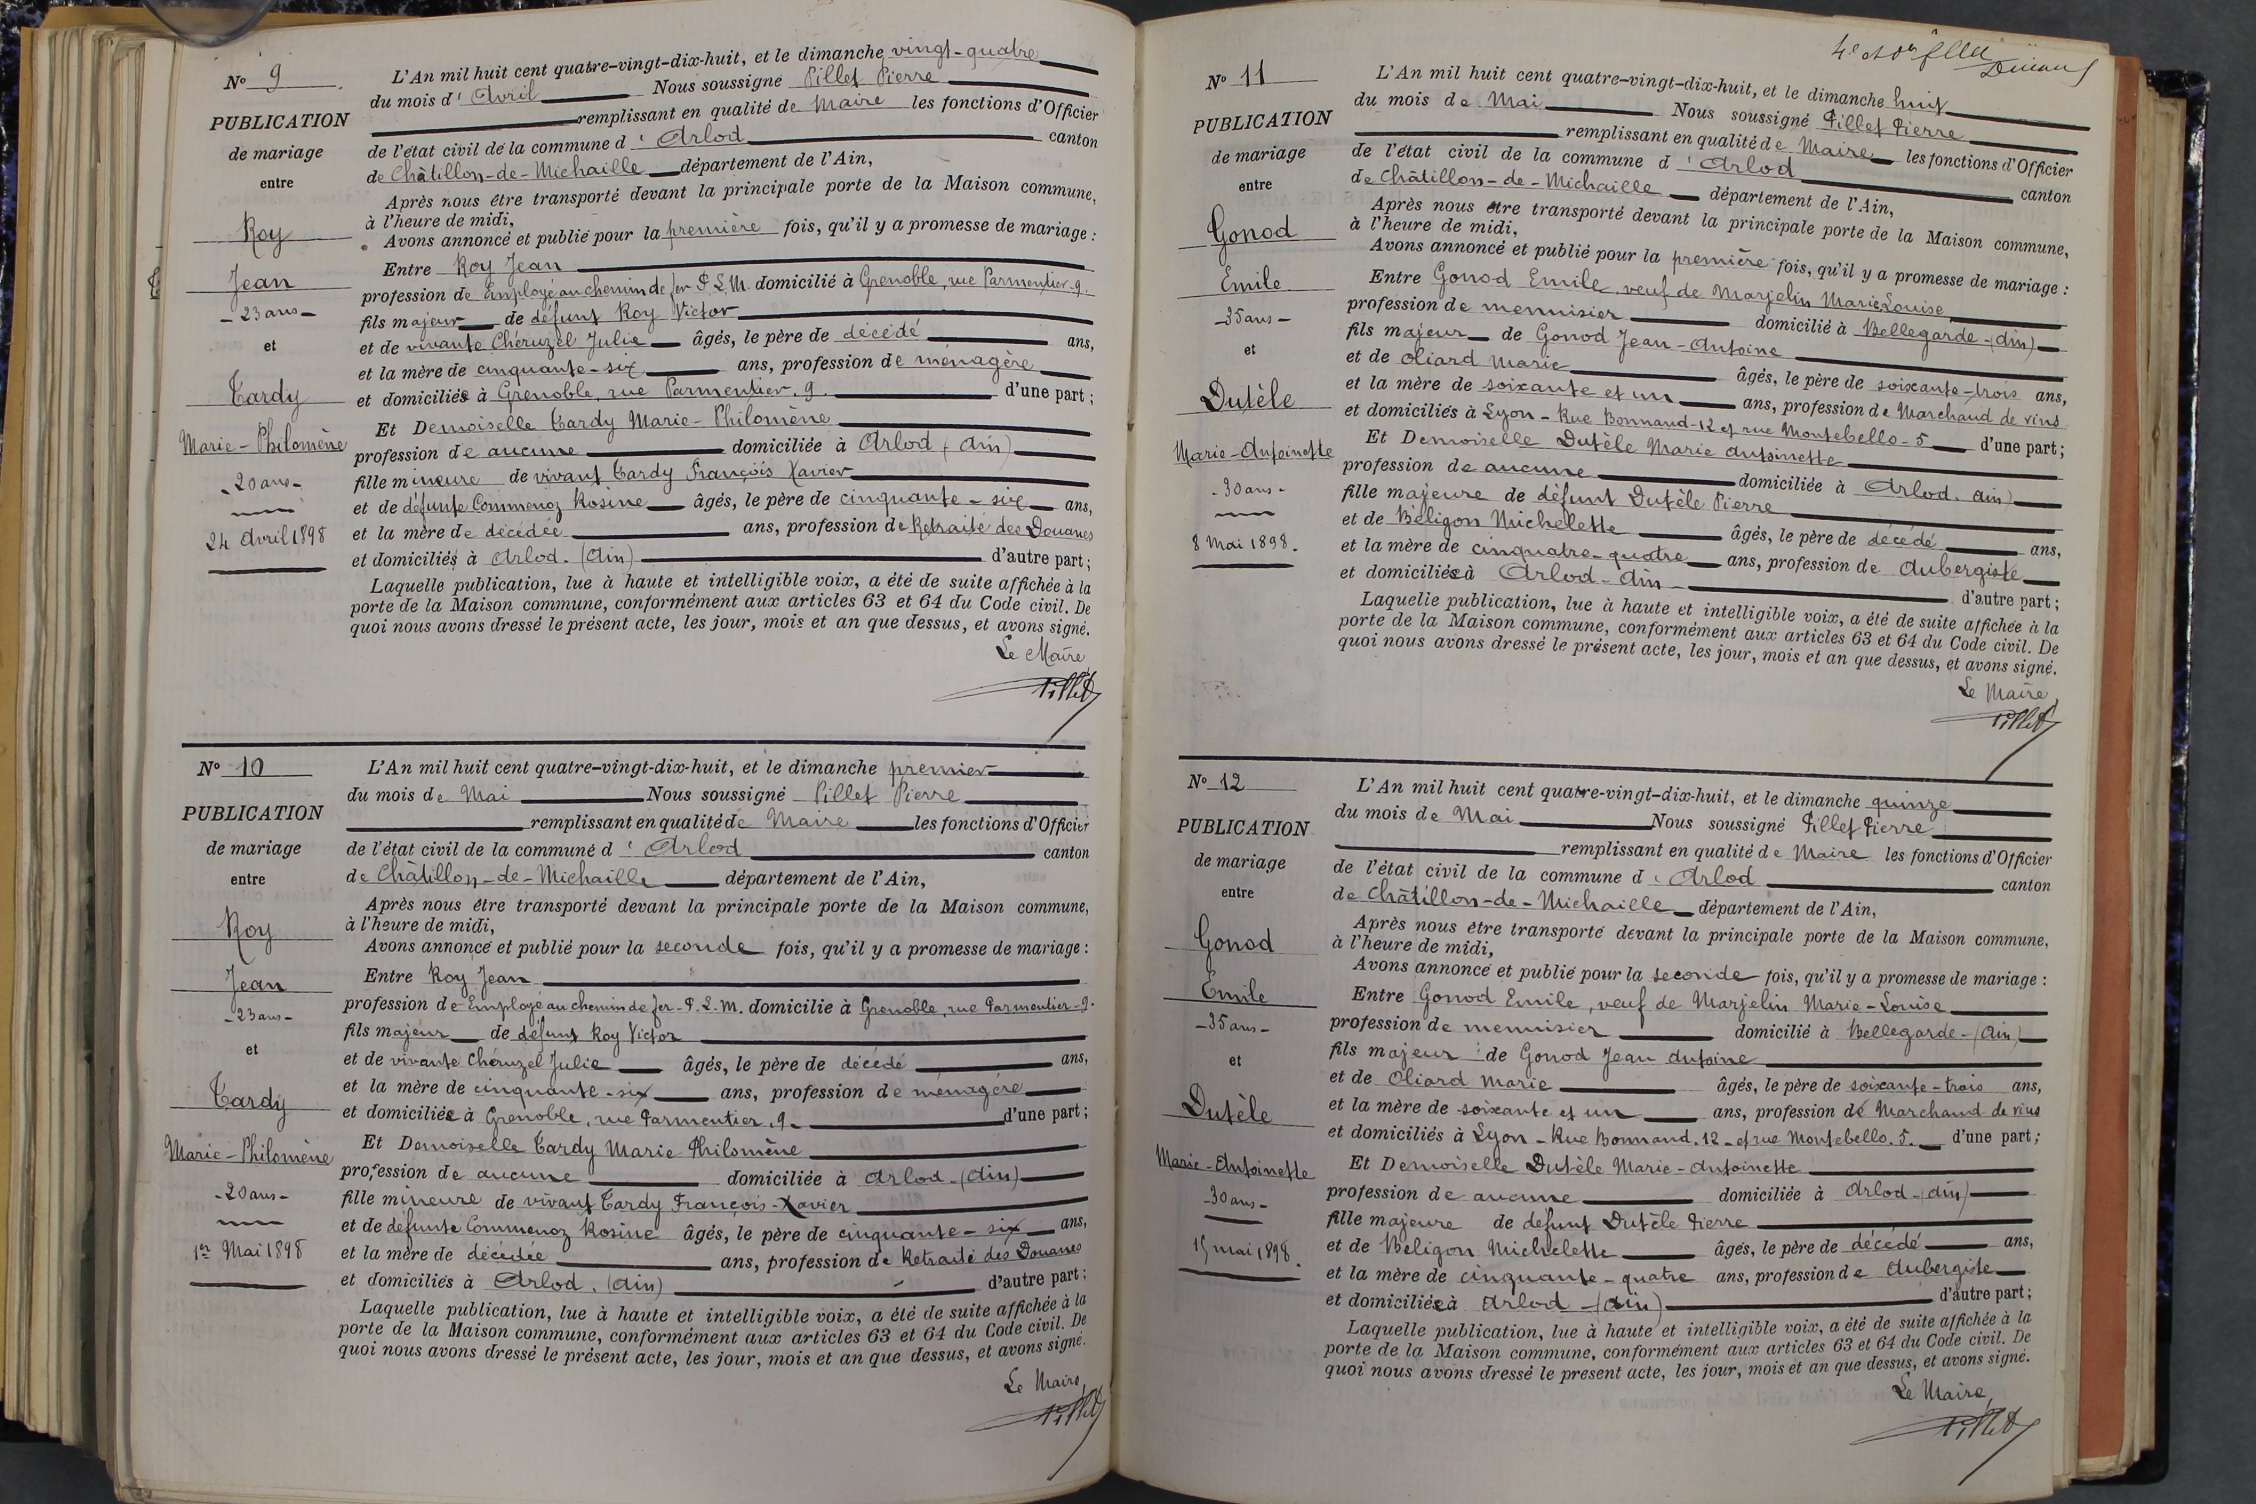 N° 9
PUBLICATION
de mariage
entre
Roy
Jean
- 23 ans -
et
Tardy
Marie-Philomène
- 20 ans -
24 Avril 1898
L'An mil huit cent quatre-vingt-dix-huit, et le dimanche vingt-quatre
du mois d'Avril Nous soussigné Pillet Pierre
remplissant en qualité de Maire les fonctions d'Officier
de l'état civil de la commune d'Arlod canton
de Châtillon-de-Michaille département de l'Ain,
Après nous être transporté devant la principale porte de la Maison commune,
à l'heure de midi,
Avons annoncé et publié pour la première fois, qu'il y a promesse de mariage :
Entre Roy Jean
profession de Employé au chemin de fer P. L. M. domicilié à Grenoble, rue Parmentier-9.
fils majeur de défunt Roy Victor
et de vivante Chéruzel Julie âgés, le père de décédé ans,
et la mère de cinquante-six ans, profession de ménagère
et domiciliés à Grenoble, rue Parmentier. 9. d'une part ;
Et Demoiselle Tardy Marie-Philomène
profession de aucune domiciliée à Arlod (Ain)
fille mineure de vivant Tardy François Xavier
et de défunte Commenoz Rosine âgés, le père de cinquante-six ans,
et la mère de décédée ans, profession de Retraité des Douanes
et domiciliés à Arlod. (Ain) d'autre part ;
Laquelle publication, lue à haute et intelligible voix, a été de suite affichée à la
porte de la Maison commune, conformément aux articles 63 et 64 du Code civil. De
quoi nous avons dressé le présent acte, les jour, mois et an que dessus, et avons signé.
Le Maire
Pillet
N° 10
PUBLICATION
de mariage
entre
Roy
Jean
- 23 ans -
et
Tardy
Marie-Philomène
- 20 ans -
1er Mai 1898
L'An mil huit cent quatre-vingt-dix-huit, et le dimanche premier
du mois de Mai Nous soussigné Pillet Pierre
remplissant en qualité de Maire les fonctions d'Officier
de l'état civil de la commune d'Arlod canton
de Châtillon-de-Michaille département de l'Ain,
Après nous être transporté devant la principale porte de la Maison commune,
à l'heure de midi,
Avons annoncé et publié pour la seconde fois, qu'il y a promesse de mariage :
Entre Roy Jean
profession de Employé au chemin de fer - P. L. M. domicilié à Grenoble, rue Parmentier-9.
fils majeur de défunt Roy Victor
et de vivante Chéruzel Julie âgés, le père de décédé ans,
et la mère de cinquante-six ans, profession de ménagère
et domiciliés à Grenoble, rue Parmentier. 9. d'une part ;
Et Demoiselle Tardy Marie Philomène
profession de aucune domiciliée à Arlod-(Ain)
fille mineure de vivant Tardy François-Xavier
et de défunte Commenoz Rosine âgés, le père de cinquante-six ans,
et la mère de décédée ans, profession de Retraité des Douanes
et domiciliés à Arlod. (Ain) d'autre part ;
Laquelle publication, lue à haute et intelligible voix, a été de suite affichée à la
porte de la Maison commune, conformément aux articles 63 et 64 du Code civil. De
quoi nous avons dressé le présent acte, les jour, mois et an que dessus, et avons signé.
Le Maire
Pillet
N° 11
PUBLICATION
de mariage
entre
Gonod
Emile
- 35 ans -
et
Dutèle
Marie-Antoinette
- 30 ans -
8 Mai 1898.
L'An mil huit cent quatre-vingt-dix-huit, et le dimanche huit
du mois de Mai Nous soussigné Pillet Pierre
remplissant en qualité de Maire les fonctions d'Officier
de l'état civil de la commune d'Arlod canton
de Châtillon-de-Michaille département de l'Ain,
Après nous être transporté devant la principale porte de la Maison commune,
à l'heure de midi,
Avons annoncé et publié pour la première fois, qu'il y a promesse de mariage :
Entre Gonod Emile, veuf de Marjelin Marie Louise
profession de menuisier domicilié à Bellegarde-(Ain)
fils majeur de Gonod Jean-Antoine
et de Oliard Marie âgés, le père de soixante-trois ans,
et la mère de soixante et un ans, profession de Marchand de vins
et domiciliés à Lyon - Rue Bonnand-12 et rue Montebello-5 d'une part ;
Et Demoiselle Dutèle Marie Antoinette
profession de aucune domiciliée à Arlod. Ain)
fille majeure de défunt Dutèle Pierre
et de Béligon Michelette âgés, le père de décédé ans,
et la mère de cinquatre-quatre ans, profession de Aubergiste
et domiciliés à Arlod-Ain d'autre part ;
Laquelle publication, lue à haute et intelligible voix, a été de suite affichée à la
porte de la Maison commune, conformément aux articles 63 et 64 du Code civil. De
quoi nous avons dressé le présent acte, les jour, mois et an que dessus, et avons signé.
Le Maire
Pillet
N° 12
PUBLICATION
de mariage
entre
Gonod
Emile
- 35 ans -
et
Dutèle
Marie-Antoinette
- 30 ans -
15 mai 1898.
L'An mil huit cent quatre-vingt-dix-huit, et le dimanche quinze
du mois de Mai Nous soussigné Pillet Pierre
remplissant en qualité de Maire les fonctions d'Officier
de l'état civil de la commune d'Arlod canton
de Châtillon-de-Michaille département de l'Ain,
Après nous être transporté devant la principale porte de la Maison commune,
à l'heure de midi,
Avons annoncé et publié pour la seconde fois, qu'il y a promesse de mariage :
Entre Gonod Emile, veuf de Marjelin Marie-Louise
profession de menuisier domicilié à Bellegarde-(Ain)
fils majeur de Gonod Jean Antoine
et de Oliard Marie âgés, le père de soixante-trois ans,
et la mère de soixante et un ans, profession de Marchand de vins
et domiciliés à Lyon - Rue Bonnand. 12 - et rue Montebello. 5. d'une part ;
Et Demoiselle Dutèle Marie-Antoinette
profession de aucune domiciliée à Arlod-(Ain)
fille majeure de défunt Dutèle Pierre
et de Béligon Michelette âgés, le père de décédé ans,
et la mère de cinquante-quatre ans, profession de Aubergiste
et domiciliés à Arlod-(Ain) d'autre part ;
Laquelle publication, lue à haute et intelligible voix, a été de suite affichée à la
porte de la Maison commune, conformément aux articles 63 et 64 du Code civil. De
quoi nous avons dressé le présent acte, les jour, mois et an que dessus, et avons signé.
Le Maire,
Pillet